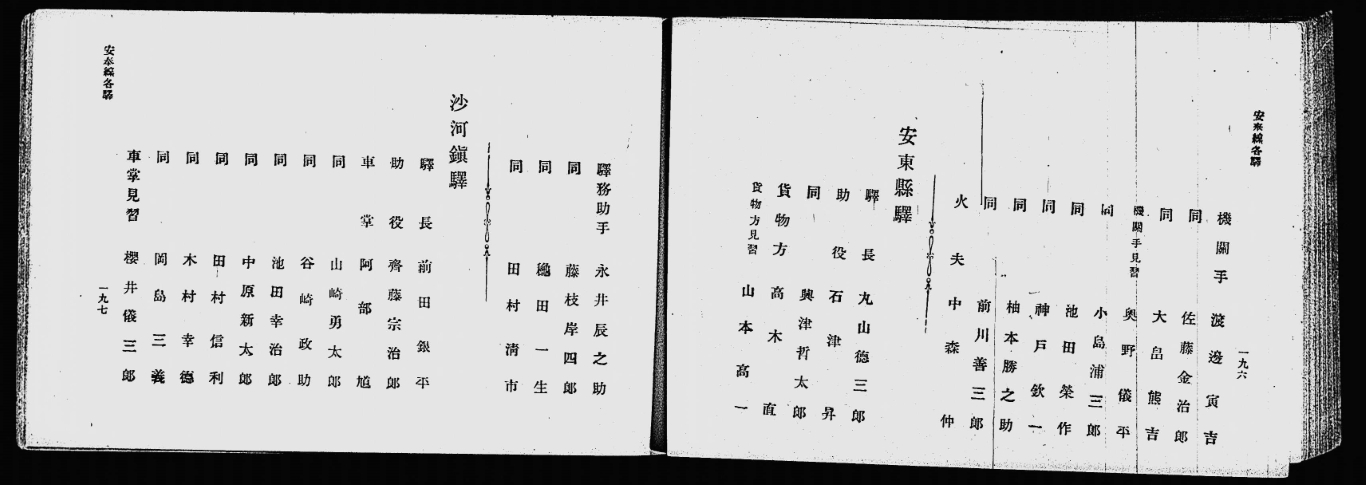 安奉線各驛
一九六
機關手 渡邊寅吉
同 佐藤金治郎
同 大畠熊吉
機關手見習 奧野儀平
同 小島浦三郎
同 池田榮作
同 神戶欽一
同 柚本勝之助
同 前川善三郎
火夫 中森仲
安東縣驛
驛長 丸山德三郎
助役 石津昇
同 興津哲太郎
貨物方 高木直
貨物方見習 山本高一
驛務助手 永井辰之助
同 藤枝岸四郎
同 龝田一生
同 田村淸市
沙河鎭驛
驛長 前田銀平
助役 齊藤宗治郎
車掌 阿部
同 山崎勇太郎
同 谷崎政助
同 池田幸治郎
同 中原新太郎
同 田村信利
同 木村幸德
同 岡島三義
車掌見習 櫻井儀三郎
安奉線各驛
一九七